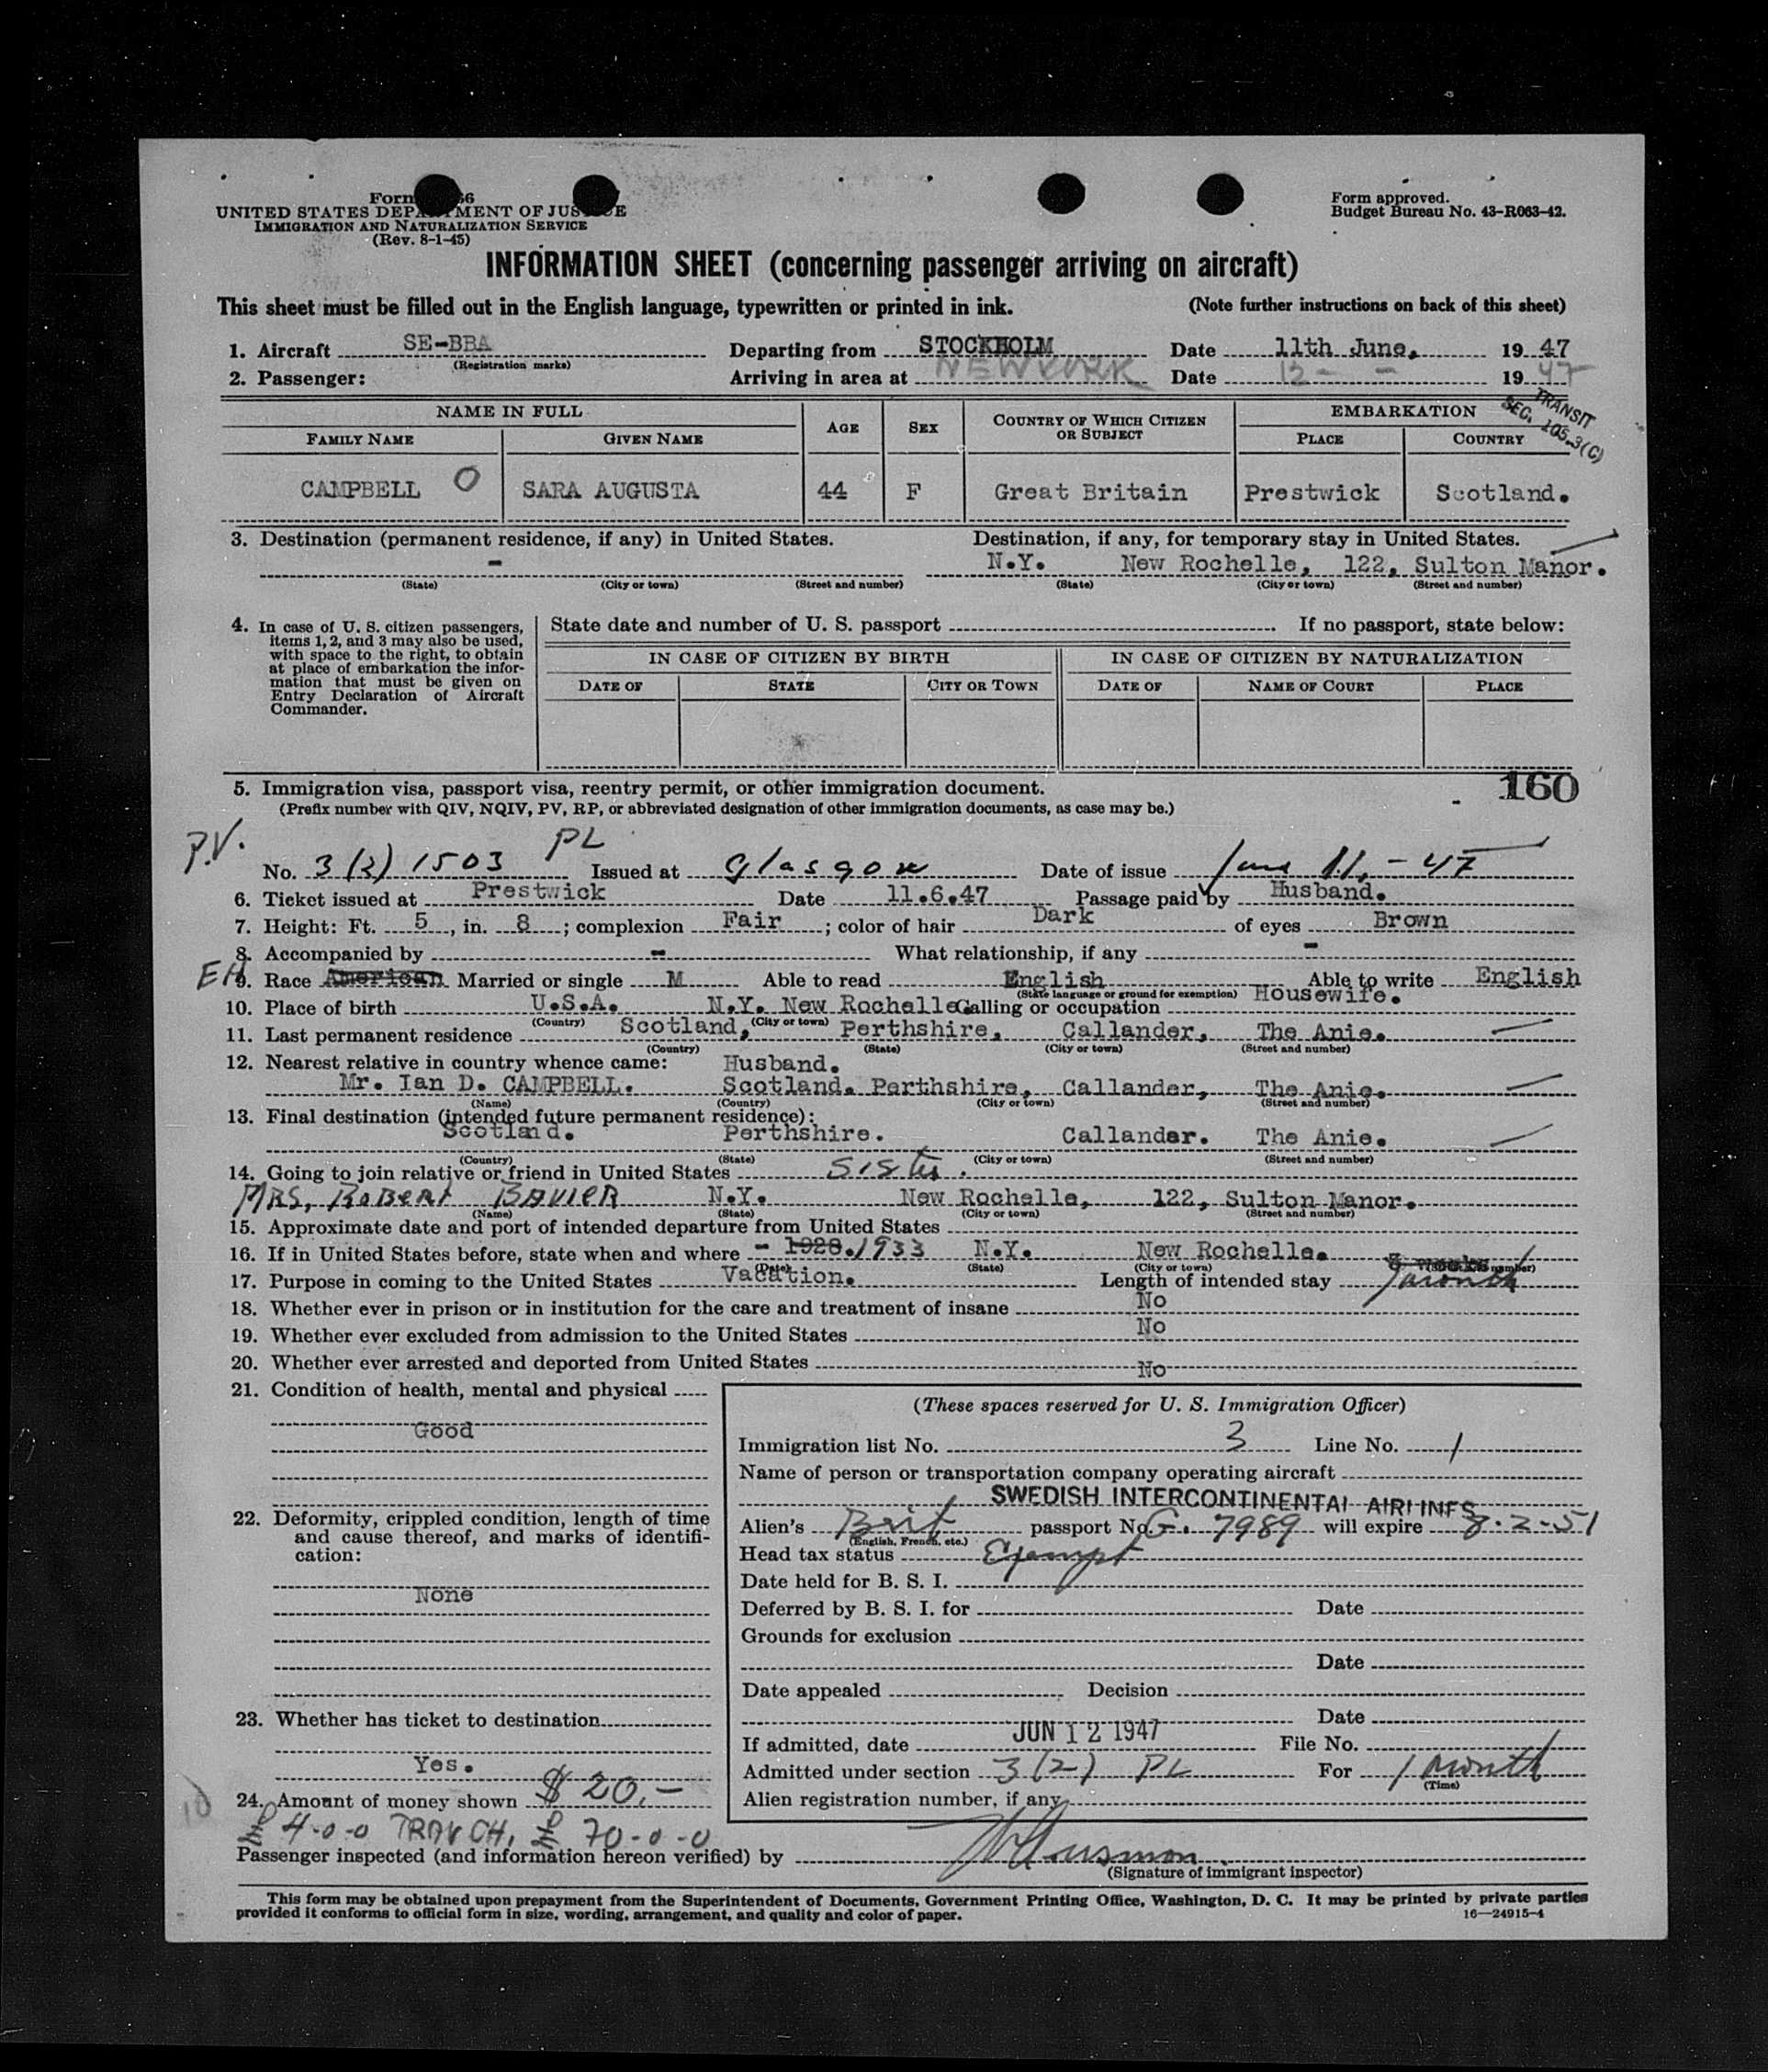 Form 66
UNITED STATES DEPARTMENT OF JUSTICE
IMMIGRATION AND NATURALIZATION SERVICE
(Rev. 8-1-45)
Form approved.
Budget Bureau No. 43-R063-42.
INFORMATION SHEET (concerning passenger arriving on aircraft)
This sheet must be filled out in the English language, typewritten or printed in ink. (Note further instructions on back of this sheet)
1. Aircraft SE-BBA Departing from STOCKHOLM Date 11th June, 19 47
(Registration marks)
2. Passenger: Arriving in area at NEW YORK Date 12 - - 19 47
TRANSIT
SEC. 105.3(C)
NAME IN FULL AGE SEX COUNTRY OF WHICH CITIZEN OR SUBJECT EMBARKATION
FAMILY NAME GIVEN NAME PLACE COUNTRY
CAMPBELL O SARA AUGUSTA 44 F Great Britain Prestwick Scotland.
3. Destination (permanent residence, if any) in United States. Destination, if any, for temporary stay in United States.
- N.Y. New Rochelle, 122, Sulton Manor.
(State) (City or town) (Street and number) (State) (City or town) (Street and number)
4. In case of U. S. citizen passengers, items 1, 2, and 3 may also be used, with space to the right, to obtain at place of embarkation the information that must be given on Entry Declaration of Aircraft Commander.
State date and number of U. S. passport If no passport, state below:
IN CASE OF CITIZEN BY BIRTH IN CASE OF CITIZEN BY NATURALIZATION
DATE OF STATE CITY OR TOWN DATE OF NAME OF COURT PLACE
160
5. Immigration visa, passport visa, reentry permit, or other immigration document.
(Prefix number with QIV, NQIV, PV, RP, or abbreviated designation of other immigration documents, as case may be.)
P.V. No. 3(2) 1503 PL Issued at Glasgow Date of issue June 11, - 47
6. Ticket issued at Prestwick Date 11.6.47 Passage paid by Husband.
7. Height: Ft. 5, in. 8; complexion Fair; color of hair Dark of eyes Brown
8. Accompanied by - What relationship, if any -
EH 9. Race American Married or single M Able to read English Able to write English
(State language or ground for exemption)
10. Place of birth U.S.A. N.Y. New Rochelle. Calling or occupation Housewife.
(Country) (City or town)
11. Last permanent residence Scotland, Perthshire, Callander, The Anie.
(Country) (State) (City or town) (Street and number)
12. Nearest relative in country whence came: Husband.
Mr. Ian D. CAMPBELL. Scotland. Perthshire, Callander, The Anie.
(Name) (Country) (City or town) (Street and number)
13. Final destination (intended future permanent residence):
Scotland. Perthshire. Callander. The Anie.
(Country) (State) (City or town) (Street and number)
14. Going to join relative or friend in United States Sister.
MRS, ROBERT BAVIER N.Y. New Rochelle, 122, Sulton Manor.
(Name) (State) (City or town) (Street and number)
15. Approximate date and port of intended departure from United States
16. If in United States before, state when and where - 1928. 1933 N.Y. New Rochelle.
(Date) (State) (City or town) (Street and number)
17. Purpose in coming to the United States Vacation. Length of intended stay 1 month
18. Whether ever in prison or in institution for the care and treatment of insane No
19. Whether ever excluded from admission to the United States No
20. Whether ever arrested and deported from United States No
21. Condition of health, mental and physical
Good
22. Deformity, crippled condition, length of time and cause thereof, and marks of identification:
None
23. Whether has ticket to destination
Yes.
24. Amount of money shown $ 20.-
£ 4-0-0 TRAV CH, £ 70-0-0
(These spaces reserved for U. S. Immigration Officer)
Immigration list No. 3 Line No. 1
Name of person or transportation company operating aircraft
SWEDISH INTERCONTINENTAL AIRLINES
Alien's Brit passport No. G. 7989 will expire 8-2-51
(English, French, etc.)
Head tax status Exempt
Date held for B. S. I.
Deferred by B. S. I. for Date
Grounds for exclusion
Date
Date appealed Decision
Date
If admitted, date JUN 12 1947 File No.
Admitted under section 3(2) PL For 1 Month
(Time)
Alien registration number, if any
Passenger inspected (and information hereon verified) by
(Signature of immigrant inspector)
This form may be obtained upon prepayment from the Superintendent of Documents, Government Printing Office, Washington, D. C. It may be printed by private parties
provided it conforms to official form in size, wording, arrangement, and quality and color of paper. 16—24915-4